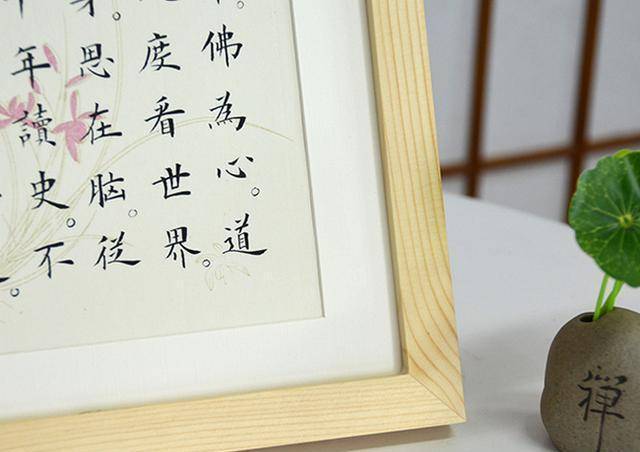 佛為心。道
度看世界。
身。思在脑。從
年讀史。不
禅